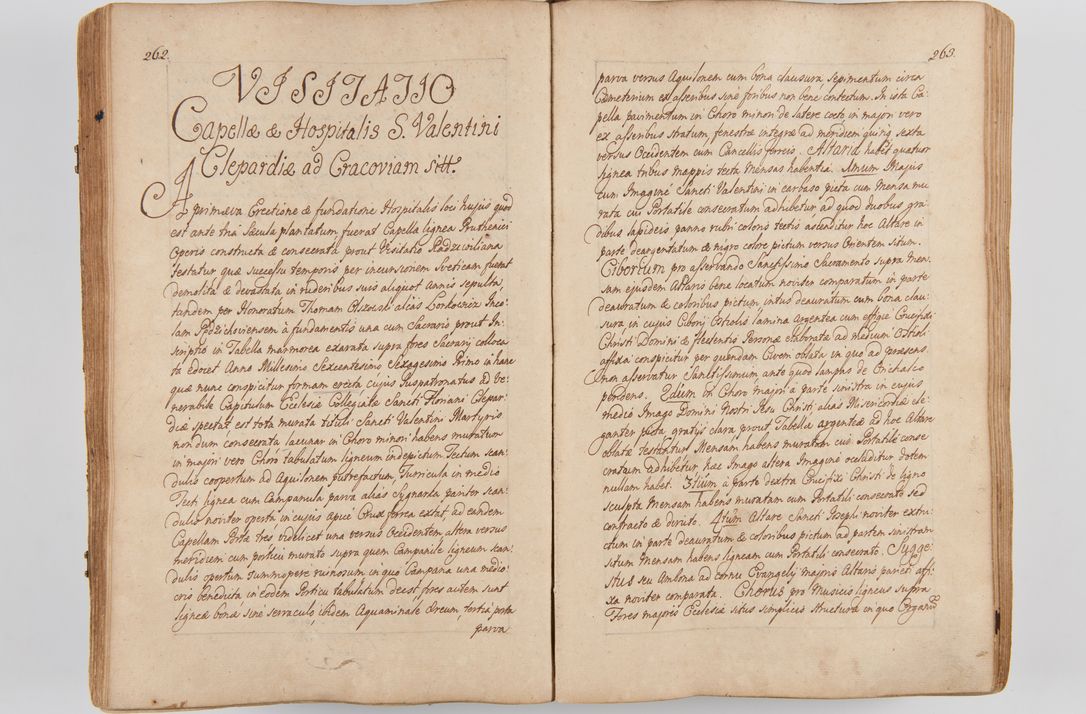 262.
VISITATIO
Capellæ & Hospitalis S. Valentini
Clepardiæ ad Cracoviam sitt.
A primæva Erectione & fundatione Hospitalis loci hujus quod
est ante tria sæcula plantatum fuerat Capella lignea Pruthenici
Operis constructa & consecrata prout Visitatio Radziviliana
testatur quæ successu temporis per incursionem Sveticam fuerat
demolita & devastata in ruderibus suis aliquot Annis sepulta,
tandem per Honoratum Thomam alias Inco-
lam à fundamentis una cum Sacrario prout In-
scriptio in Tabella marmorea exarata supra fores Sacrarij colloca
ta edocet Anno Millesimo Sexcentesimo Sexagesimo Primo in hanc
quæ nunc conspicitur formam erecta cujus Juspatronatus ad Ve-
nerabile Capitulum Ecclesiæ Collegiatæ Sancti Floriani Clepar-
diæ spectat est tota murata tituli Sancti Valentini Martyris
nondum consecrata lacunar in Choro minori habens muratum
in majori vero Choro tabulatum ligneum indepictum Tectum scan-
dulis coopertum ad Aquilonem putrefactum Turricula in medio
Tecti lignea cum Campanula parva alias Sygnarka pariter scan-
dulis noviter operta in cujus apice Crux ferrea extat, ad eandem
Capellam Porta tres videlicet una versus Occidentem, altera versus
meridiem cum porticu murato supra quem Campanile ligneum scan-
dulis opertum summopere ruinosum in quo Campana una medio
cris benedicta in eodem Porticu tabulatum deest, fores autem sunt
ligneæ bonæ sine serraculo, ibidem Aquaminale æreum, tertia porta
parva
263.
parva versus Aquilonem cum bona clausura sepimentum circa
Cæmeterium ex asseribus sine foribus non bene contectum. In ista Ca-
pella pavimentum in Choro minori de latere cocto in majori vero
ex asseribus stratum, fenestræ integræ ad meridiem quinq sexta
versus Occidentem cum Cancellis ferreis. Altaria habet quatuor
lignea tribus mappis tecta mensas habentia. Imum Majus
cum Imagine Sancti Valentini in carbaso picta cum Mensa mu
rata cui Portatile consecratum adhibetur ad quod duobus gra-
dibus lapideis panno rubri coloris tectis ascenditur hoc Altare in
parte deargentatum & nigro colore pictum versus Orientem situm.
Ciborium pro asservando Sanctissimo Sacramento supra Men-
sam ejusdem Altaris bene locatum noviter comparatum in parte
deauratum & coloribus pictum, intus deauratum cum bona clau-
sura in cujus Cibory Ostiolis lamina argentea cum effigie Crucifixi
Christi Domini & flectentis Personæ elaborata ad medium Ostioli
affixa conspicitur per quendam Civem oblata in quo ad præsens
non asservatur Sanctissimum, ante quod lampas de Orichalco
pendens. 2dum in Choro majori à parte sinistra in cujus
medio Imago Domini Nostri Jesu Christi alias Misericordiæ ele-
ganter picta, gratijs clara prout Tabellæ argenteæ ad hoc Altare
oblatæ testantur Mensam habens muratam cui Portatile conse-
cratum adhibetur hæc Imago altera Imagine occluditur dotem
nullam habet. 3tium à parte dextra Crucifixi Christi de ligno
sculpta Mensam habens muratam cum Portatili consecrato sed
contracto & diruto. 4tum Altare Sancti Josephi noviter extru-
ctum in parte deauratum & coloribus pictum ad partem sinistram
situm Mensam habens ligneam cum Portatili consecrato. Sugge-
stus seu Ambona ad cornu Evangelij majoris Altaris parieti affi-
xa noviter comparata. Chorus pro Musicis ligneus supra
Fores majores Ecclesiæ situs simplicis structuræ in quo Organu